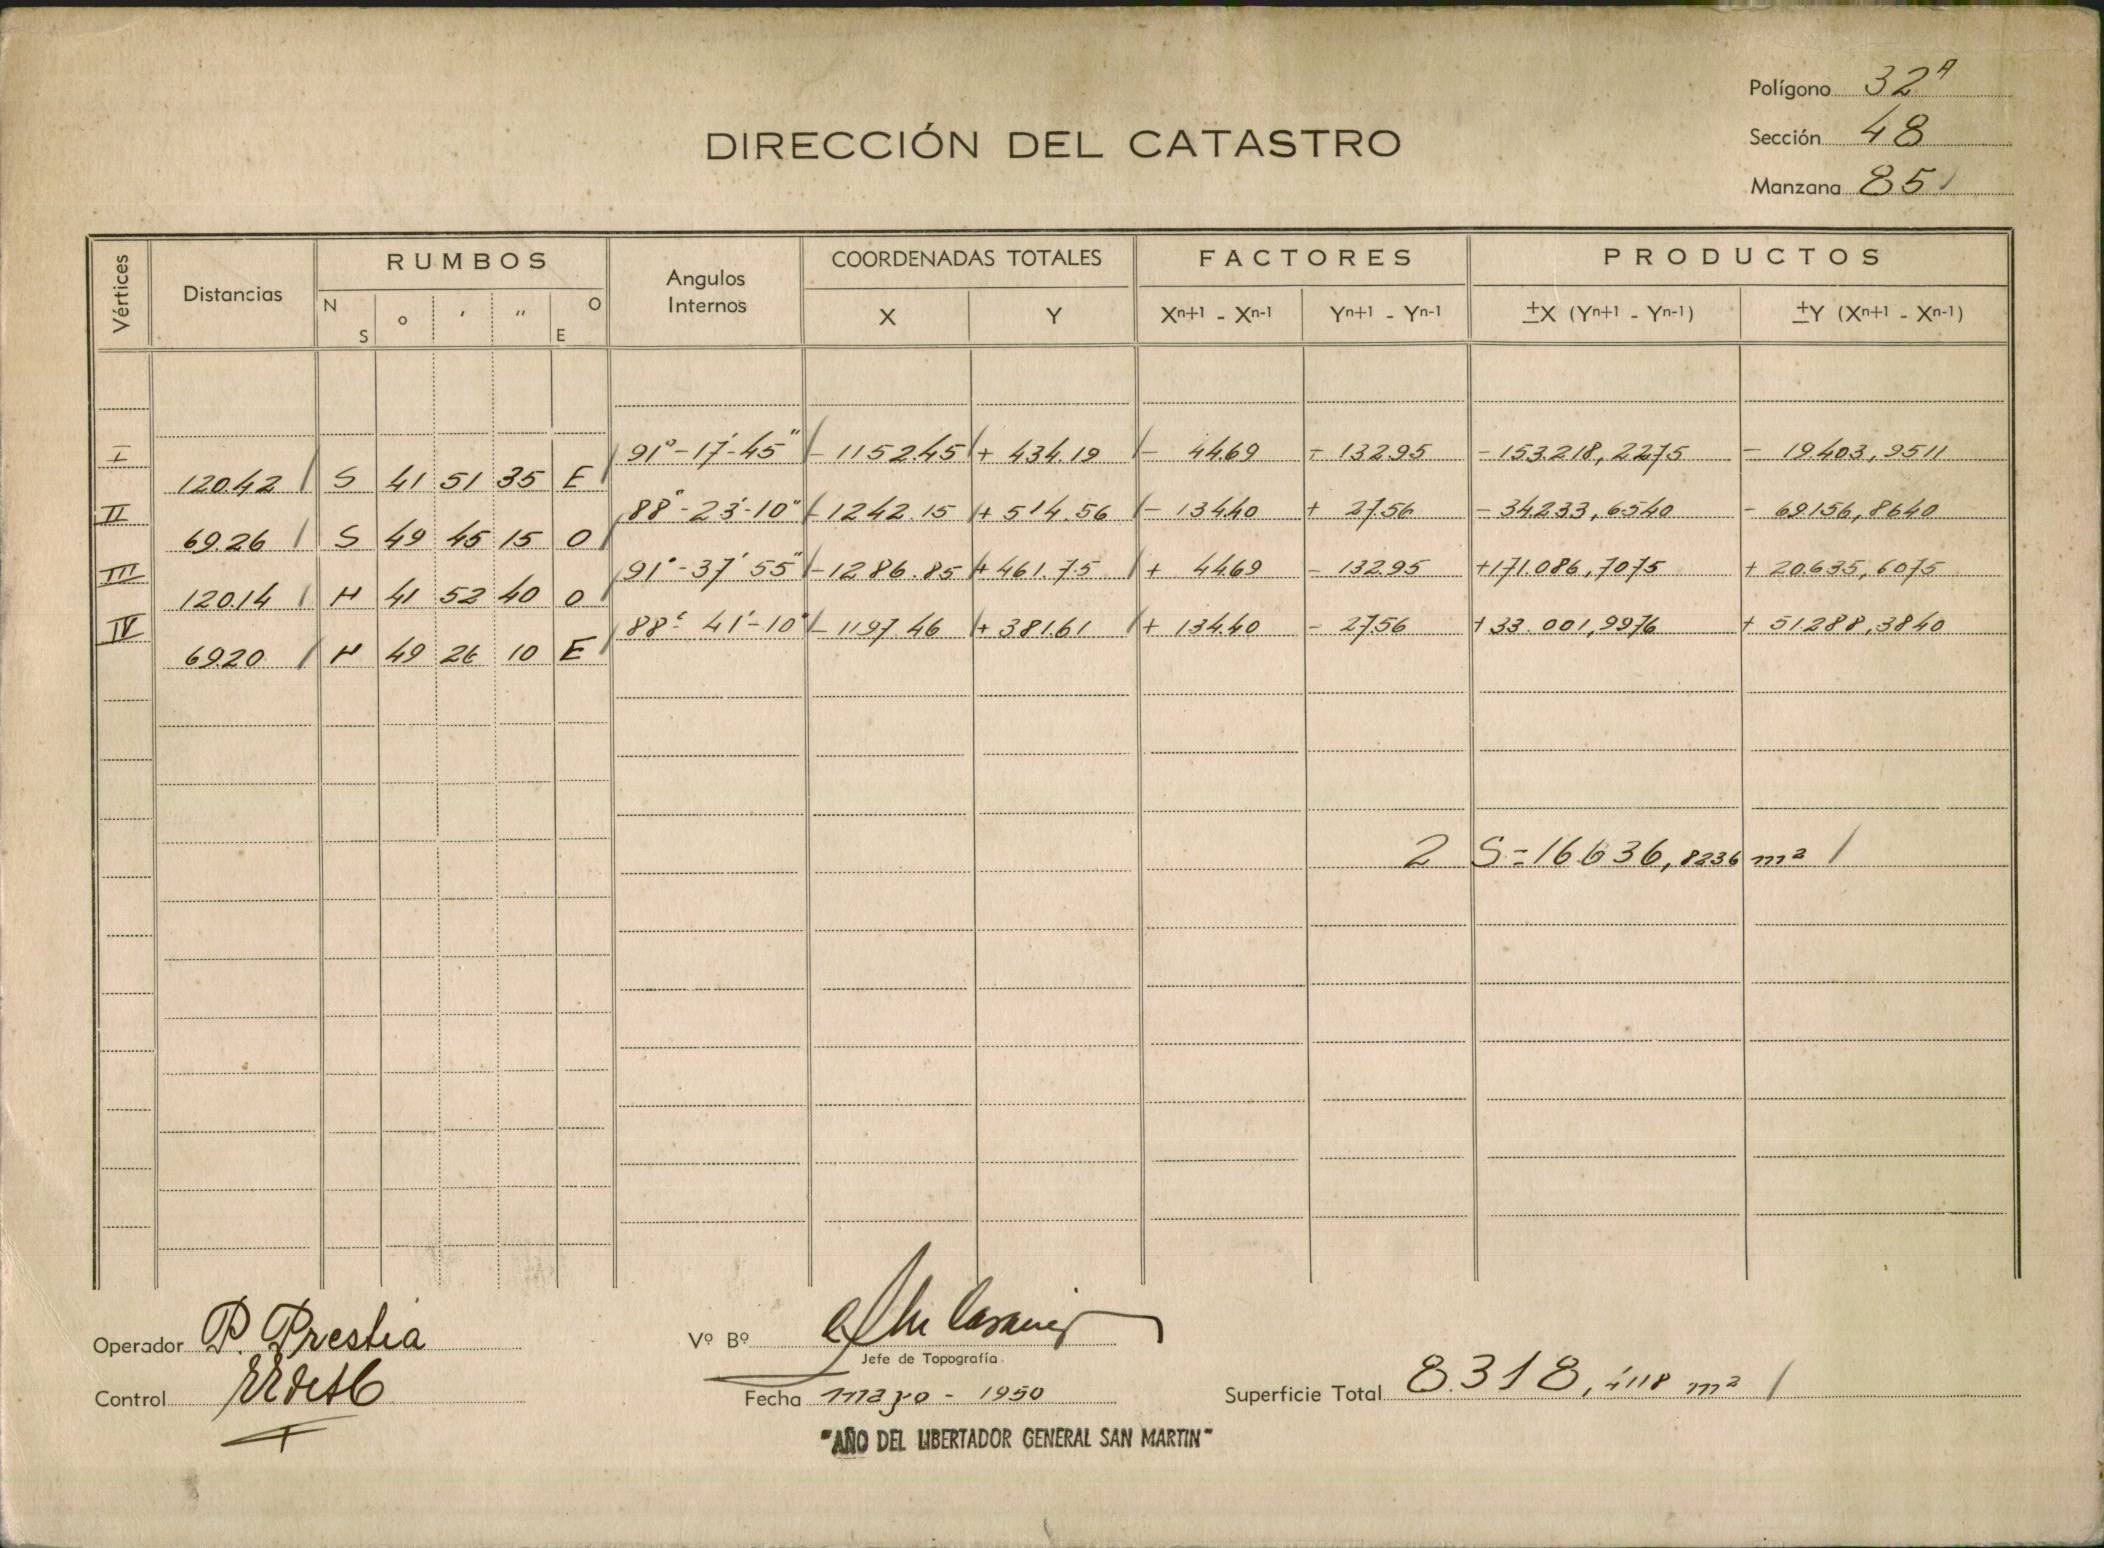 Polígono 32ᴬ
DIRECCIÓN DEL CATASTRO
Sección 48
Manzana 85
Vértices Distancias RUMBOS Angulos Internos COORDENADAS TOTALES FACTORES PRODUCTOS
N S o ′ ″ O E X Y Xⁿ⁺¹ - Xⁿ⁻¹ Yⁿ⁺¹ - Yⁿ⁻¹ ±X (Yⁿ⁺¹ - Yⁿ⁻¹) ±Y (Xⁿ⁺¹ - Xⁿ⁻¹)
I 91°-17′-45″ - 1152.45 + 434.19 - 44.69 + 132.95 - 153.218,2275 - 19.403,9511
120.42 S 41 51 35 E
II 88°-23′-10″ - 1242.15 + 514.56 - 134.40 + 27.56 - 34.233,6540 - 69.156,8640
69.26 S 49 45 15 O
III 91°-37′ 55″ - 1286.85 + 461.75 + 44.69 - 132.95 +171.086,7075 + 20.635,6075
120.14 N 41 52 40 O
IV 88° 41′-10″ - 1197.46 + 381.61 + 134.40 - 27.56 + 33.001,9976 + 51.288,3840
69.20 N 49 26 10 E
2 S = 16.636,8236 m²
Operador P. Prestia
Vº Bº
Jefe de Topografía
Control
Fecha mayo - 1950
Superficie Total 8.318,4118 m²
"AÑO DEL LIBERTADOR GENERAL SAN MARTIN"